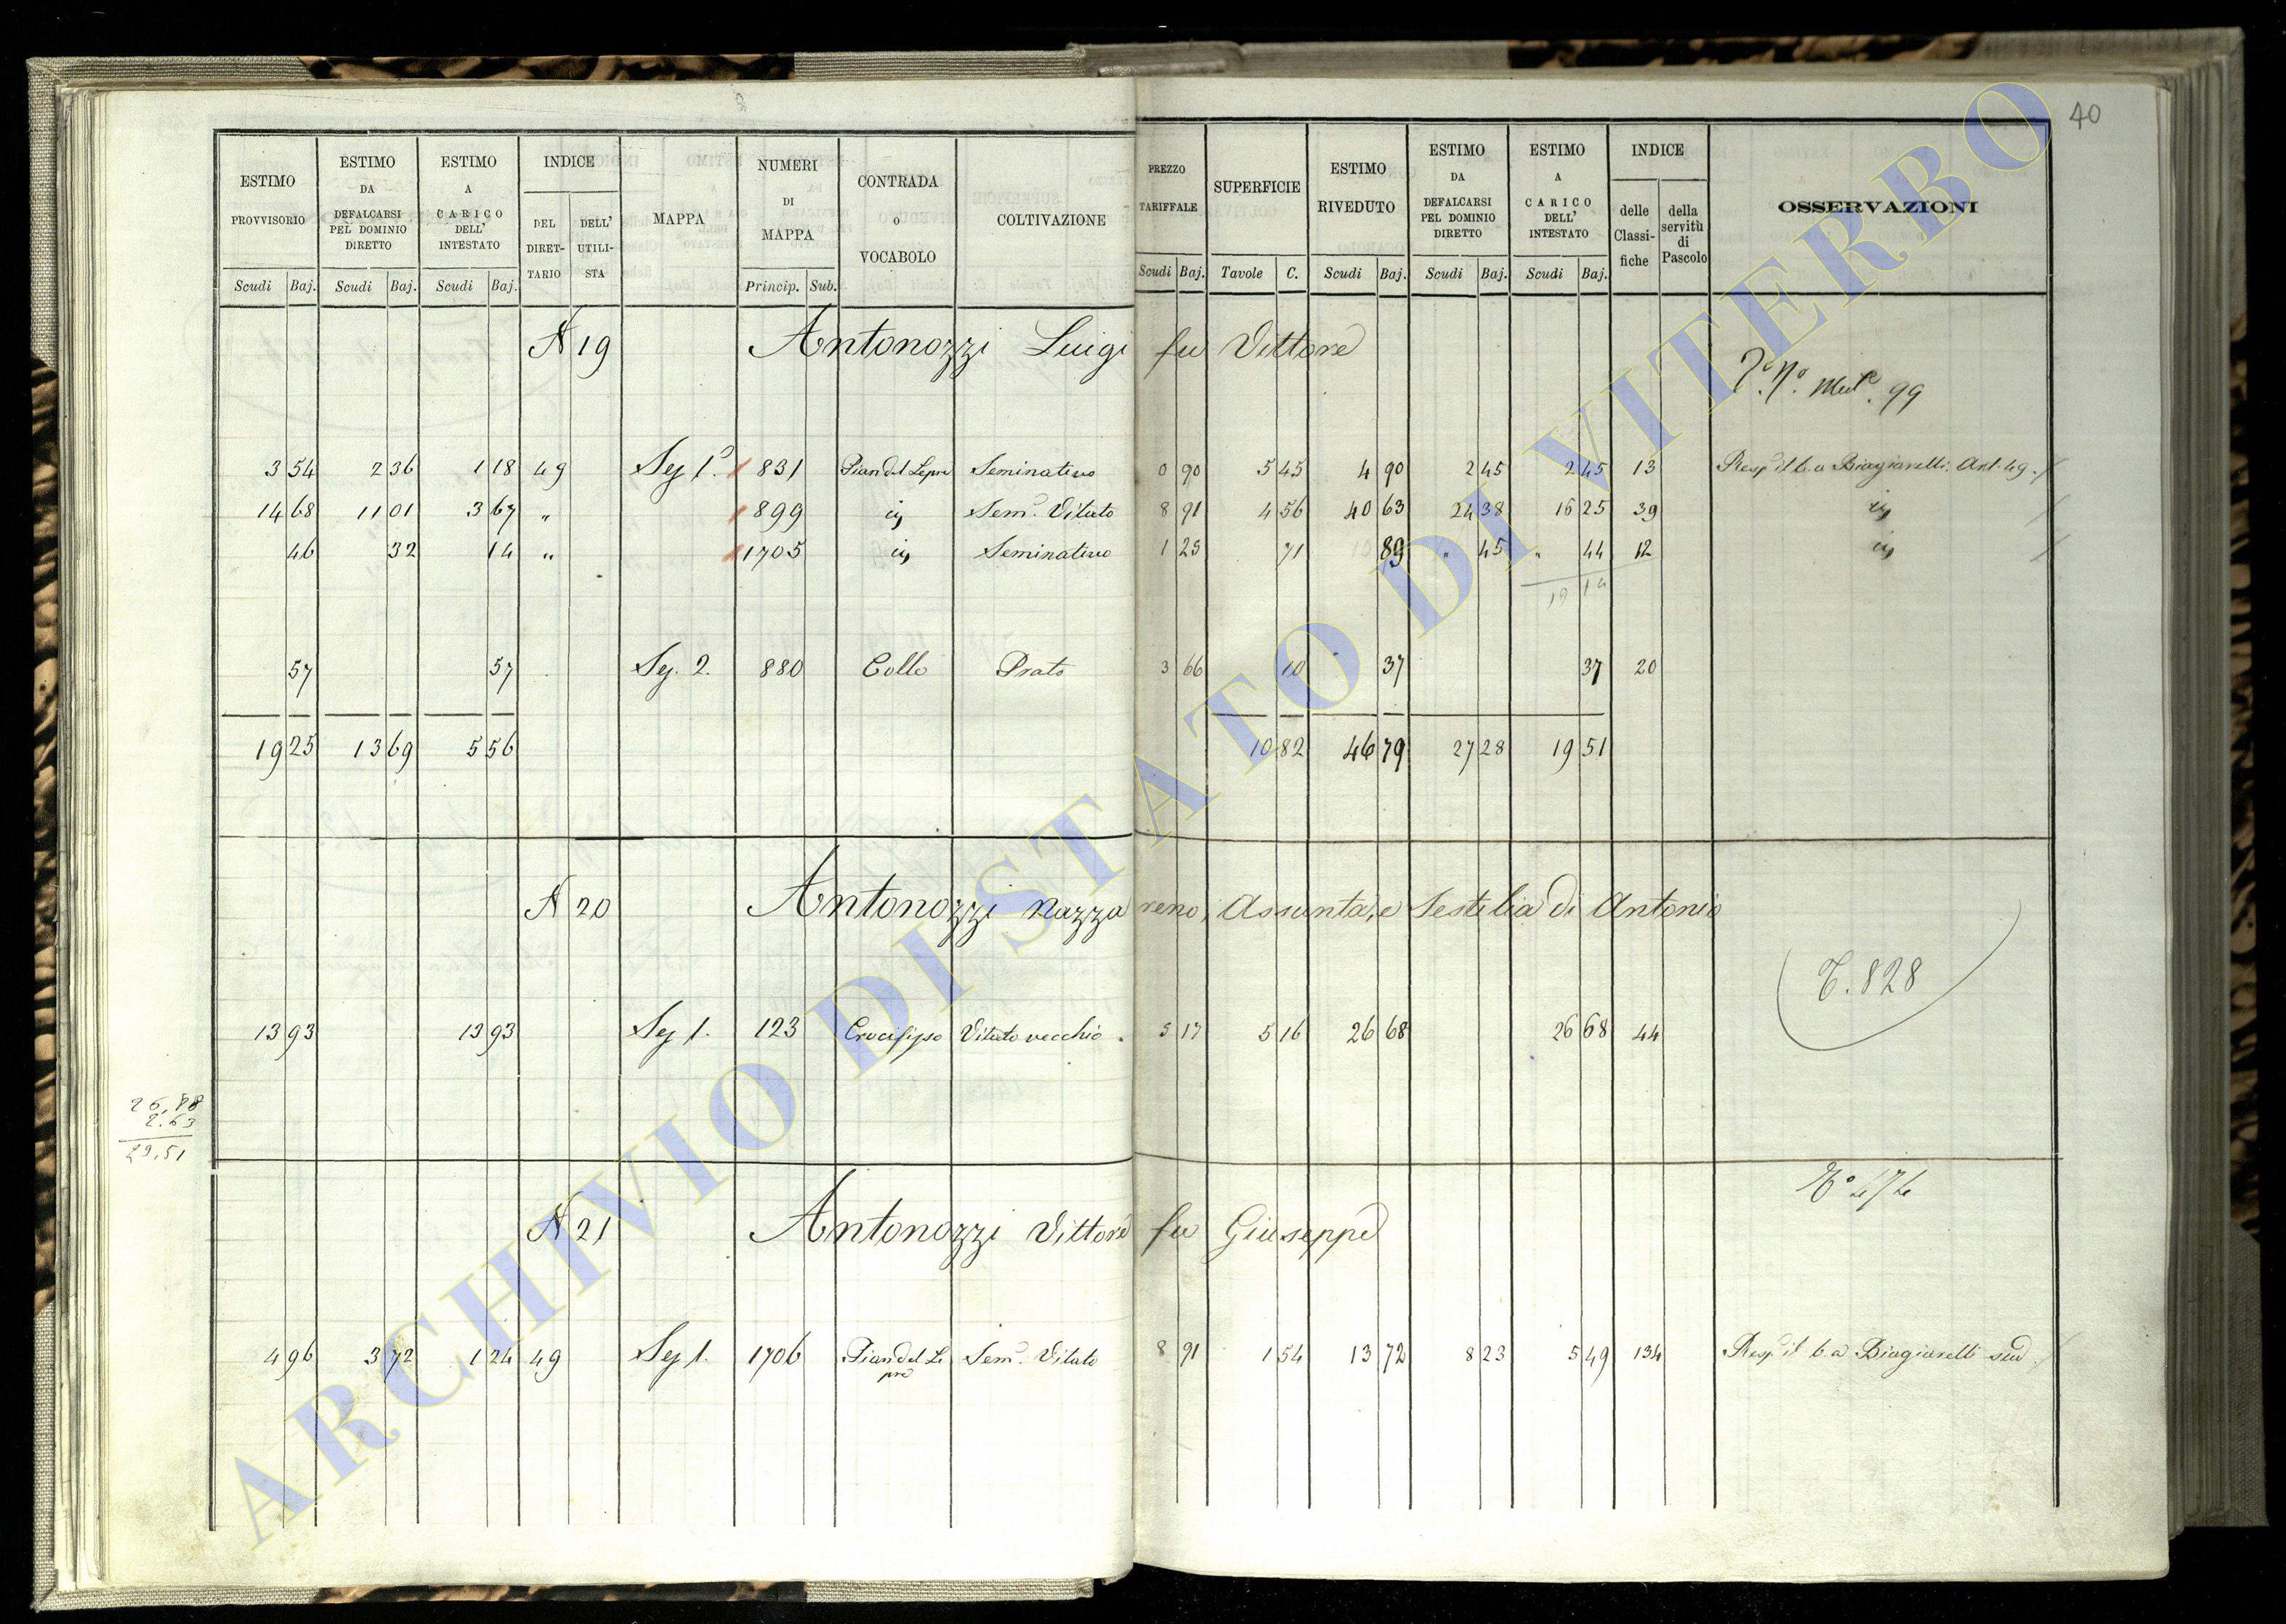 40
ESTIMO PROVVISORIO
ESTIMO DA DEFALCARSI PEL DOMINIO DIRETTO
ESTIMO A CARICO DELL' INTESTATO
INDICE
DEL DIRETTARIO
DELL' UTILISTA
MAPPA
NUMERI DI MAPPA
CONTRADA o VOCABOLO
COLTIVAZIONE
PREZZO TARIFFALE
SUPERFICIE
ESTIMO RIVEDUTO
ESTIMO DA DEFALCARSI PEL DOMINIO DIRETTO
ESTIMO A CARICO DELL' INTESTATO
INDICE
delle Classifiche
della servitù di Pascolo
OSSERVAZIONI
Scudi Baj. Scudi Baj. Scudi Baj. Princip. Sub. Scudi Baj. Tavole C. Scudi Baj. Scudi Baj. Scudi Baj.
N 19 Antonozzi Luigi fu Vittore
99
3 54 2 36 1 18 49 Sez 1ª 831 Pian del Lepre Seminativo 0 90 5 45 4 90 2 45 2 45 13 Resp. il b. a Biagiarelli Art. 49
14 68 11 01 3 67 " 899 id Semo Vitato 8 91 4 56 40 63 24 38 16 25 39 id
46 32 14 " 1705 id Seminativo 1 25 71 89 " 45 " 44 12 id
19 14
57 57 Sez. 2. 880 Collo Prato 3 66 10 37 37 20
19 25 13 69 5 56 10 82 46 79 27 28 19 51
N 20 Antonozzi Nazzareno, Assunta, e Sestilia di Antonio
T. 828
13 93 13 93 Sez 1. 123 Crocifisso Vitato vecchio 5 17 5 16 26 68 26 68 44
26,88
2.63
29,51
N 21 Antonozzi Vittore fu Giuseppe
4 96 3 72 1 24 49 Sez 1. 1706 Pian del Lepre Semo Vitato 8 91 1 54 13 72 8 23 5 49 134 Resp. il b. a Biagiarelli sud.
ARCHIVIO DI STATO DI VITERBO